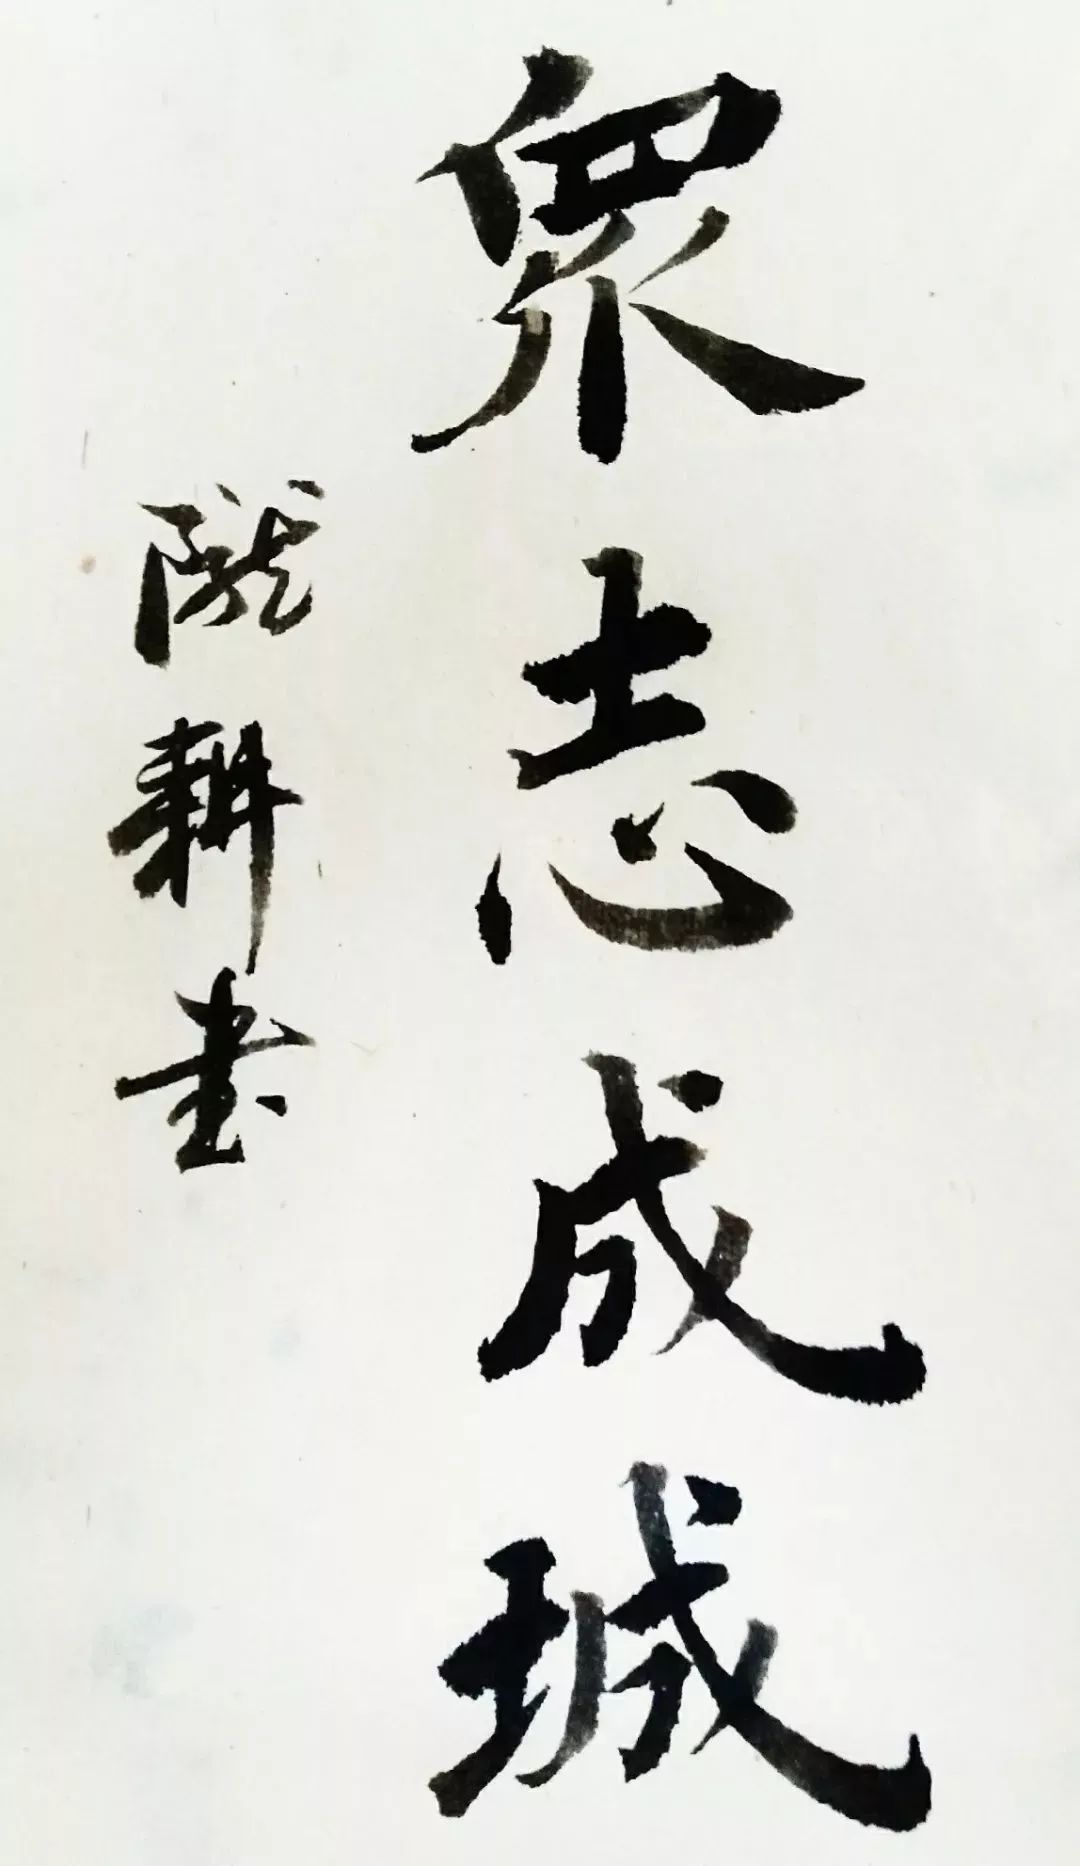 眾志成城
陇耕书